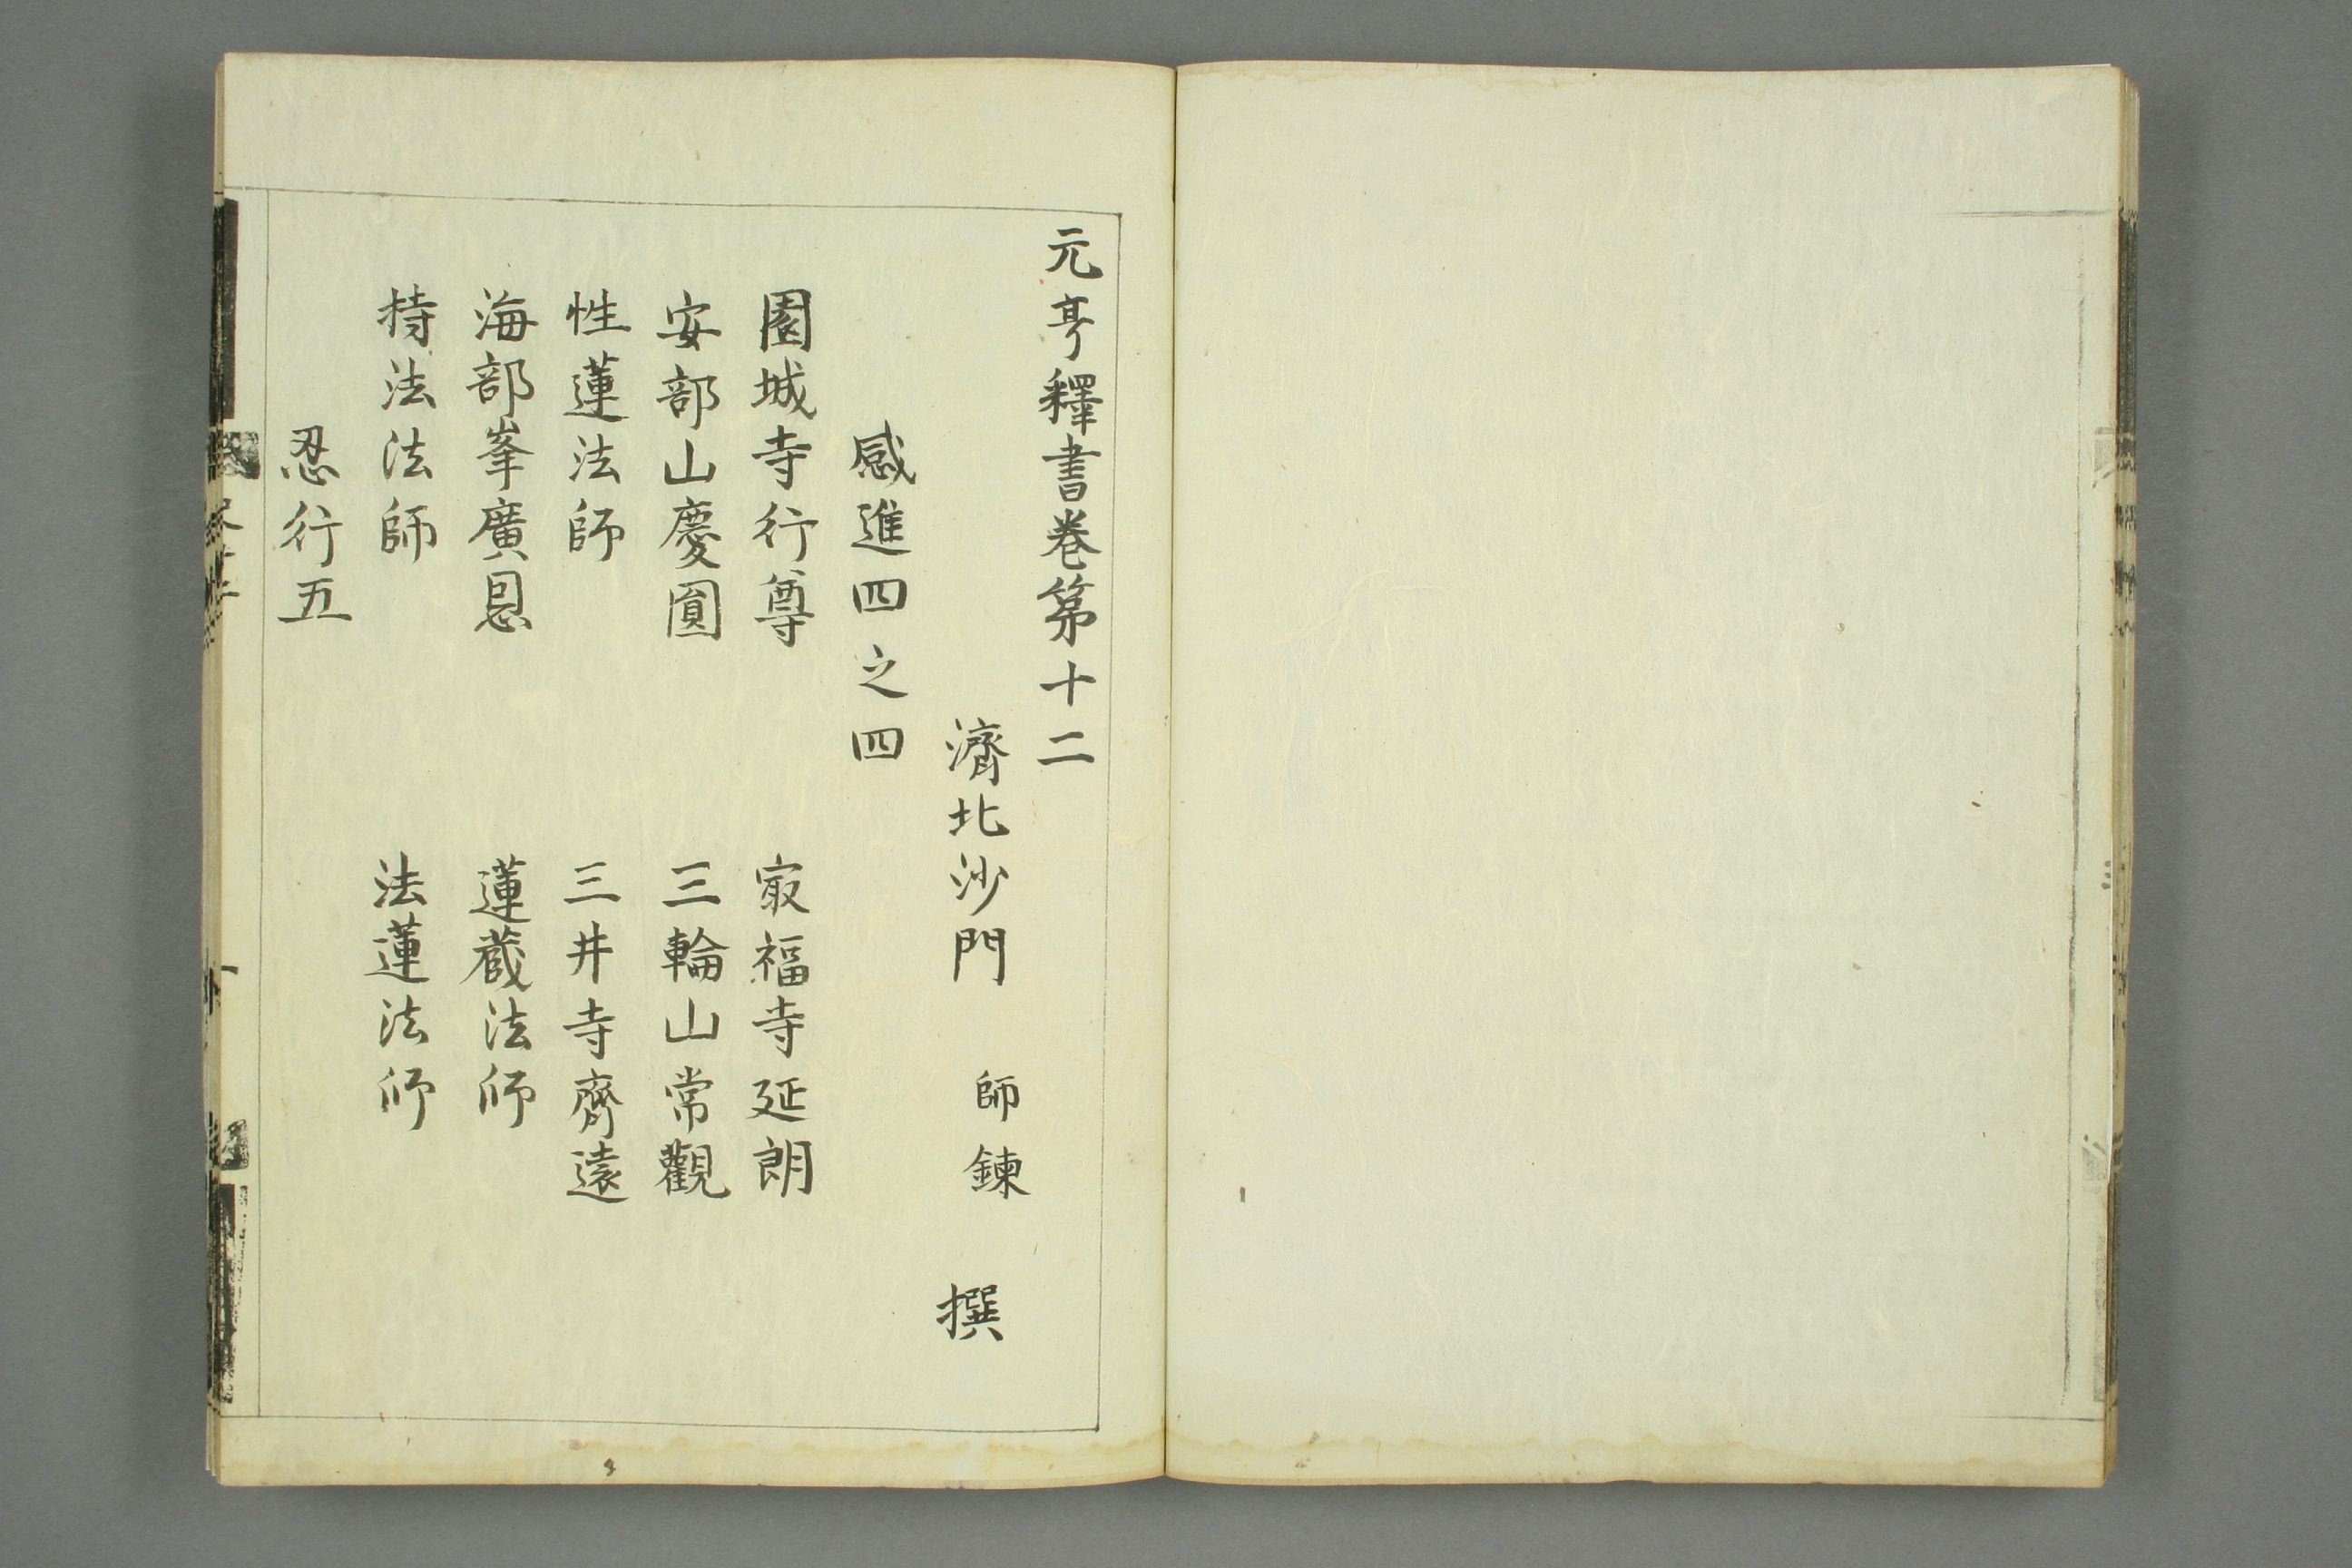 元亨釋書卷第十二
濟北沙門　師鍊　撰
感進四之四
園城寺行尊　　　㝡福寺延朗
安部山慶圓　　　三輪山常觀
性蓮法師　　　　三井寺齊遠
海部峯廣恩　　　蓮蔵法师
持法法師　　　　法蓮法师
忍行五